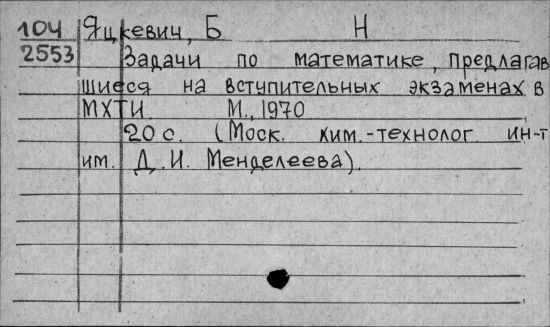 104 Яцкевич, Б Н
2553 Задачи по математике, предлагав
шиеся на вступительных экзаменах в
МХТИ. М., 1970
20 с. (Моск. хим.-технолог ин-т
им. Д. И. Менделеева).